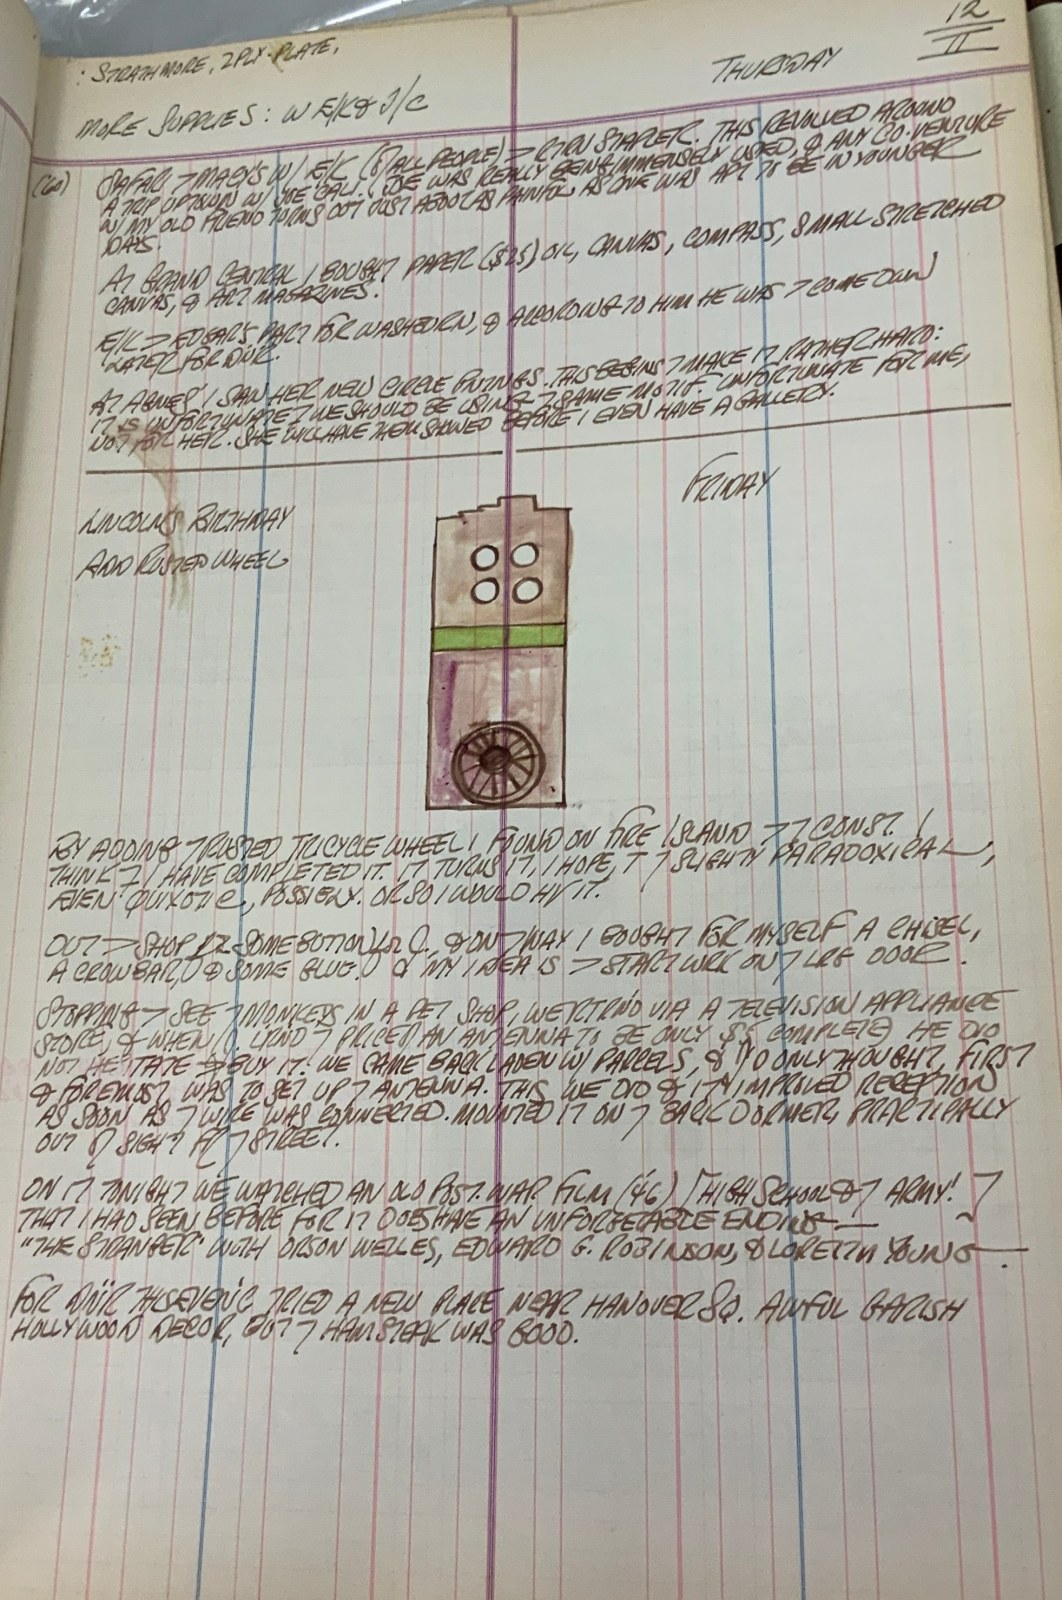 12
II
: STRATHMORE, 2PLY-PLATE,
THURSDAY
MORE SUPPLIES: W E/K & J/C
(60) SAFARI > MACY'S W/ E/K (OF ALL PEOPLE) > RTRN STAPLER. THIS REVOLVED AROUND
A TRIP UPTOWN W/ JOE CALI. (JOE WAS REALLY BEING IMMENSELY USED, & ANY CO-VENTURE
W/ MY OLD FRIEND TURNS OUT JUST ABOUT AS PAINFUL AS ONE WAS APT TO BE IN YOUNGER
DAYS.
AT GRAND CENTRAL I BOUGHT PAPER ($25) OIL, CANVAS, COMPASS, SMALL STRETCHED
CANVAS, & ART MAGAZINES.
E/K > EDGAR'S PART FOR WASHBURN, & ACCORDING TO HIM HE WAS > COME DWN
LATER FOR DNR.
AT AGNES' I SAW HER NEW CIRCLE PNTINGS. THIS BEGINS > MAKE IT RATHER HARD:
IT IS UNFORTUNATE 7 WE SHOULD BE USING 7 SAME MOTIF. UNFORTUNATE FOR ME,
NOT FOR HER. SHE WILL HAVE THEM SHOWED BEFORE I EVEN HAVE A GALLERY.
FRIDAY
LINCOLN'S BIRTHDAY
ADD RUSTED WHEEL
BY ADDING 7 RUSTED TRICYCLE WHEEL I FOUND ON FIRE ISLAND > 7 CONST. I
THINK 7 I HAVE COMPLETED IT. IT TURNS IT, I HOPE, 7 SLIGHTY PARADOXICAL,
EVEN QUIXOTIC, POSSIBLY. OR SO I WOULD HV IT.
OUT > SHOP SOME , & ON 7 WAY I BOUGHT FOR MYSELF A CHISEL,
A CROWBAR, & SOME GLUE. & MY IDEA IS > START WRK ON 7 LRG DOOR.
STOPPING > SEE 7 MONKEYS IN A PET SHOP, WE RTRN'D VIA A TELEVISION APPLIANCE
STORE, & WHEN LRN'D 7 PRICE AN ANTENNA TO BE ONLY $5 COMPLETE, HE DID
NOT HESITATE > BUY IT. WE CAME BACK LADEN W/ PARCELS, & ONLY THOUGHT, FIRST
& FOREMOST, WAS TO SET UP 7 ANTENNA. THIS WE DID & IMPROVED RECEPTION
AS SOON AS 7 WIRE WAS CONNECTED. MOUNTED IT ON 7 BACK DORMER, PRACTICALLY
OUT OF SIGHT 7 STREET.
ON IT TONIGHT WE WATCHED AN OLD POST-WAR FILM ('46) [HIGH SCHOOL & 7 ARMY!]
THAT I HAD SEEN BEFORE FOR IT DOES HAVE AN UNFORGETABLE ENDING —
"THE STRANGER" WITH ORSON WELLES, EDWARD G. ROBINSON, & LORETTA YOUNG —.
FOR DNR THIS EVEN'G TRIED A NEW PLACE NEAR HANOVER SQ. AWFUL GARISH
HOLLYWOOD DECOR, BUT 7 HAMSTEAK WAS GOOD.